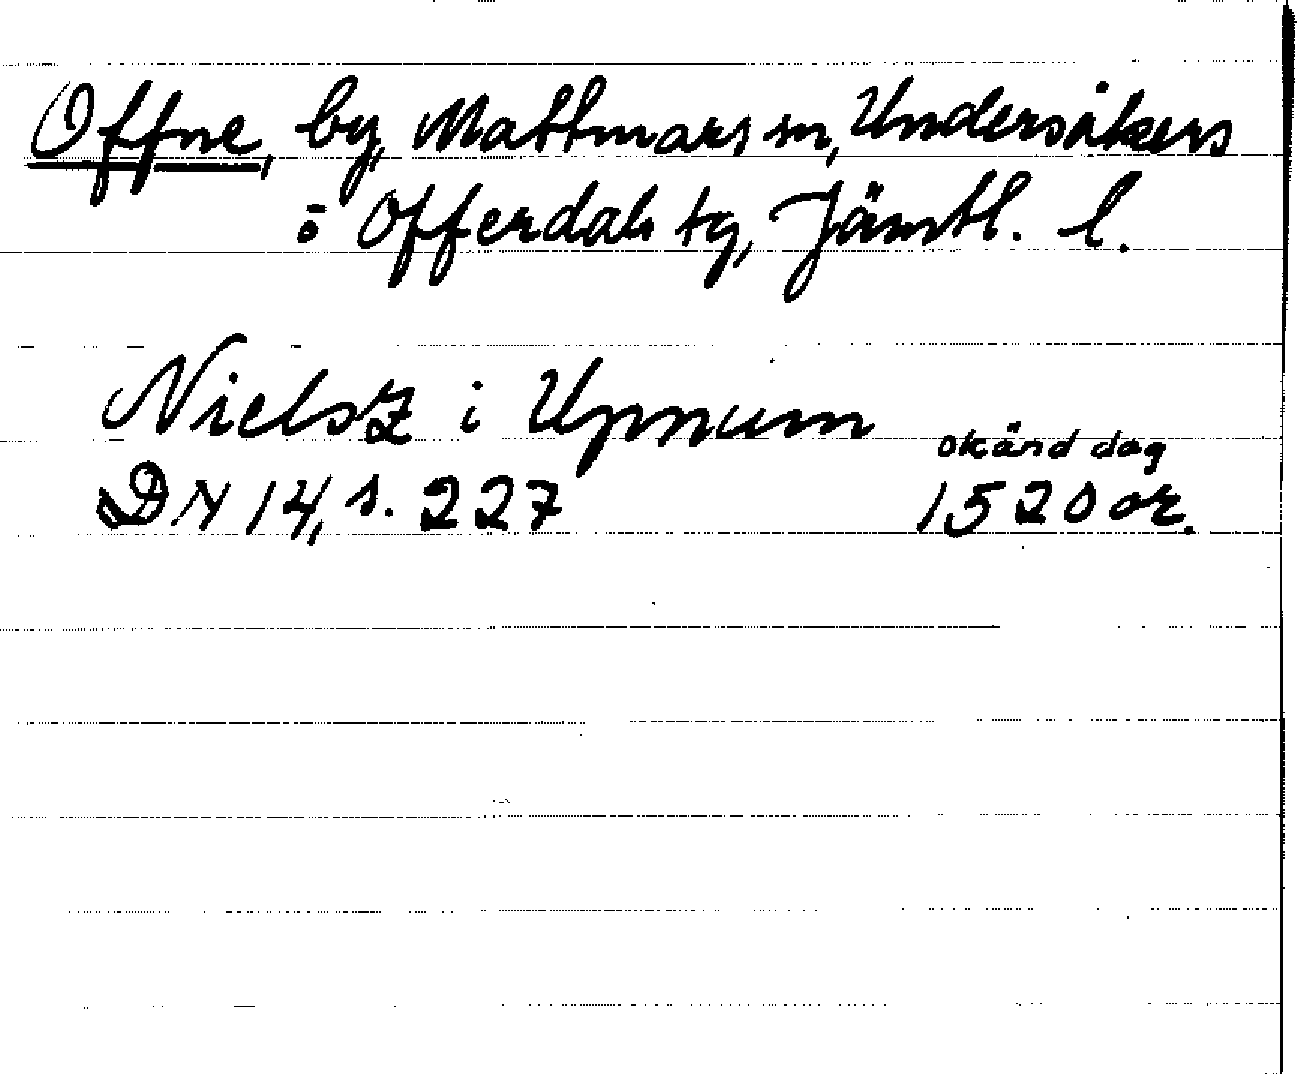 Offne, by, Mattmars sn, Undersåkers
o Offerdals tg, Jämtl. l.
Nielsz i Upnum
okänd dag
DN 14, s. 227 1520 or.